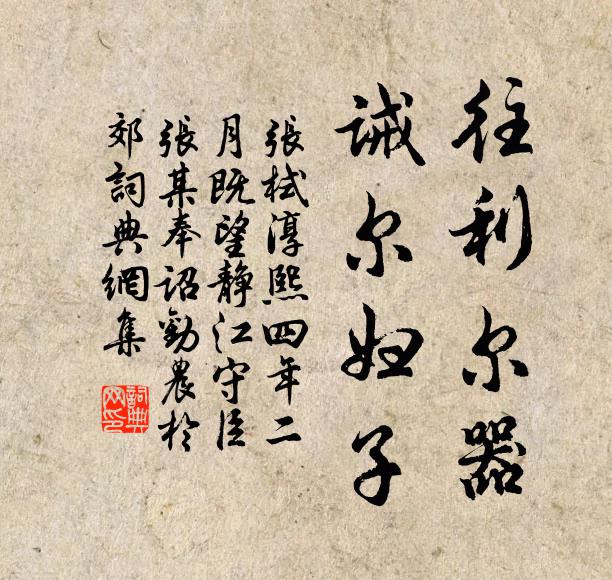 往利尔器
诫尔妇子
張栻淳熙四年二
月既望靜江守臣
張某奉詔勸農於
郊詞典網集
詞典
网印